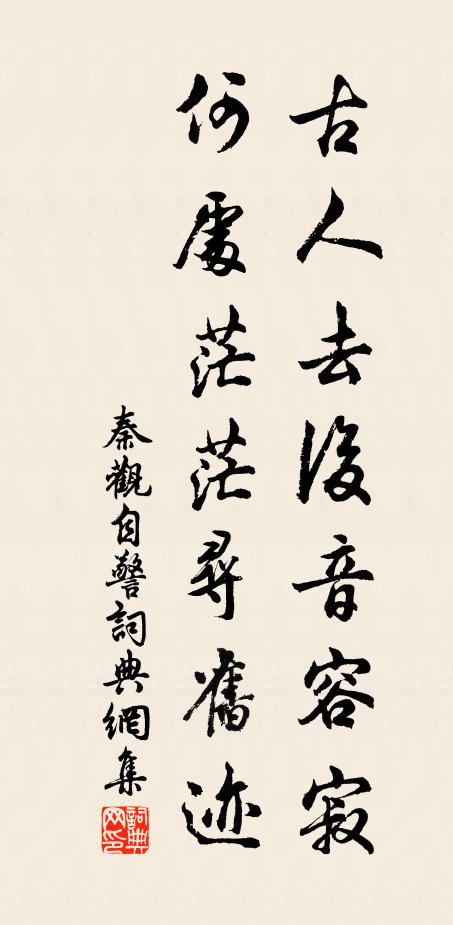 古人去後音容寂
何處茫茫尋舊迹
秦觀自警詞典網集
詞典
网印